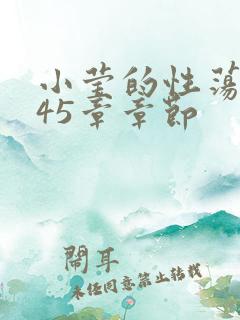 小莹的性荡
45章章節
鬧耳
未经同意禁止转载